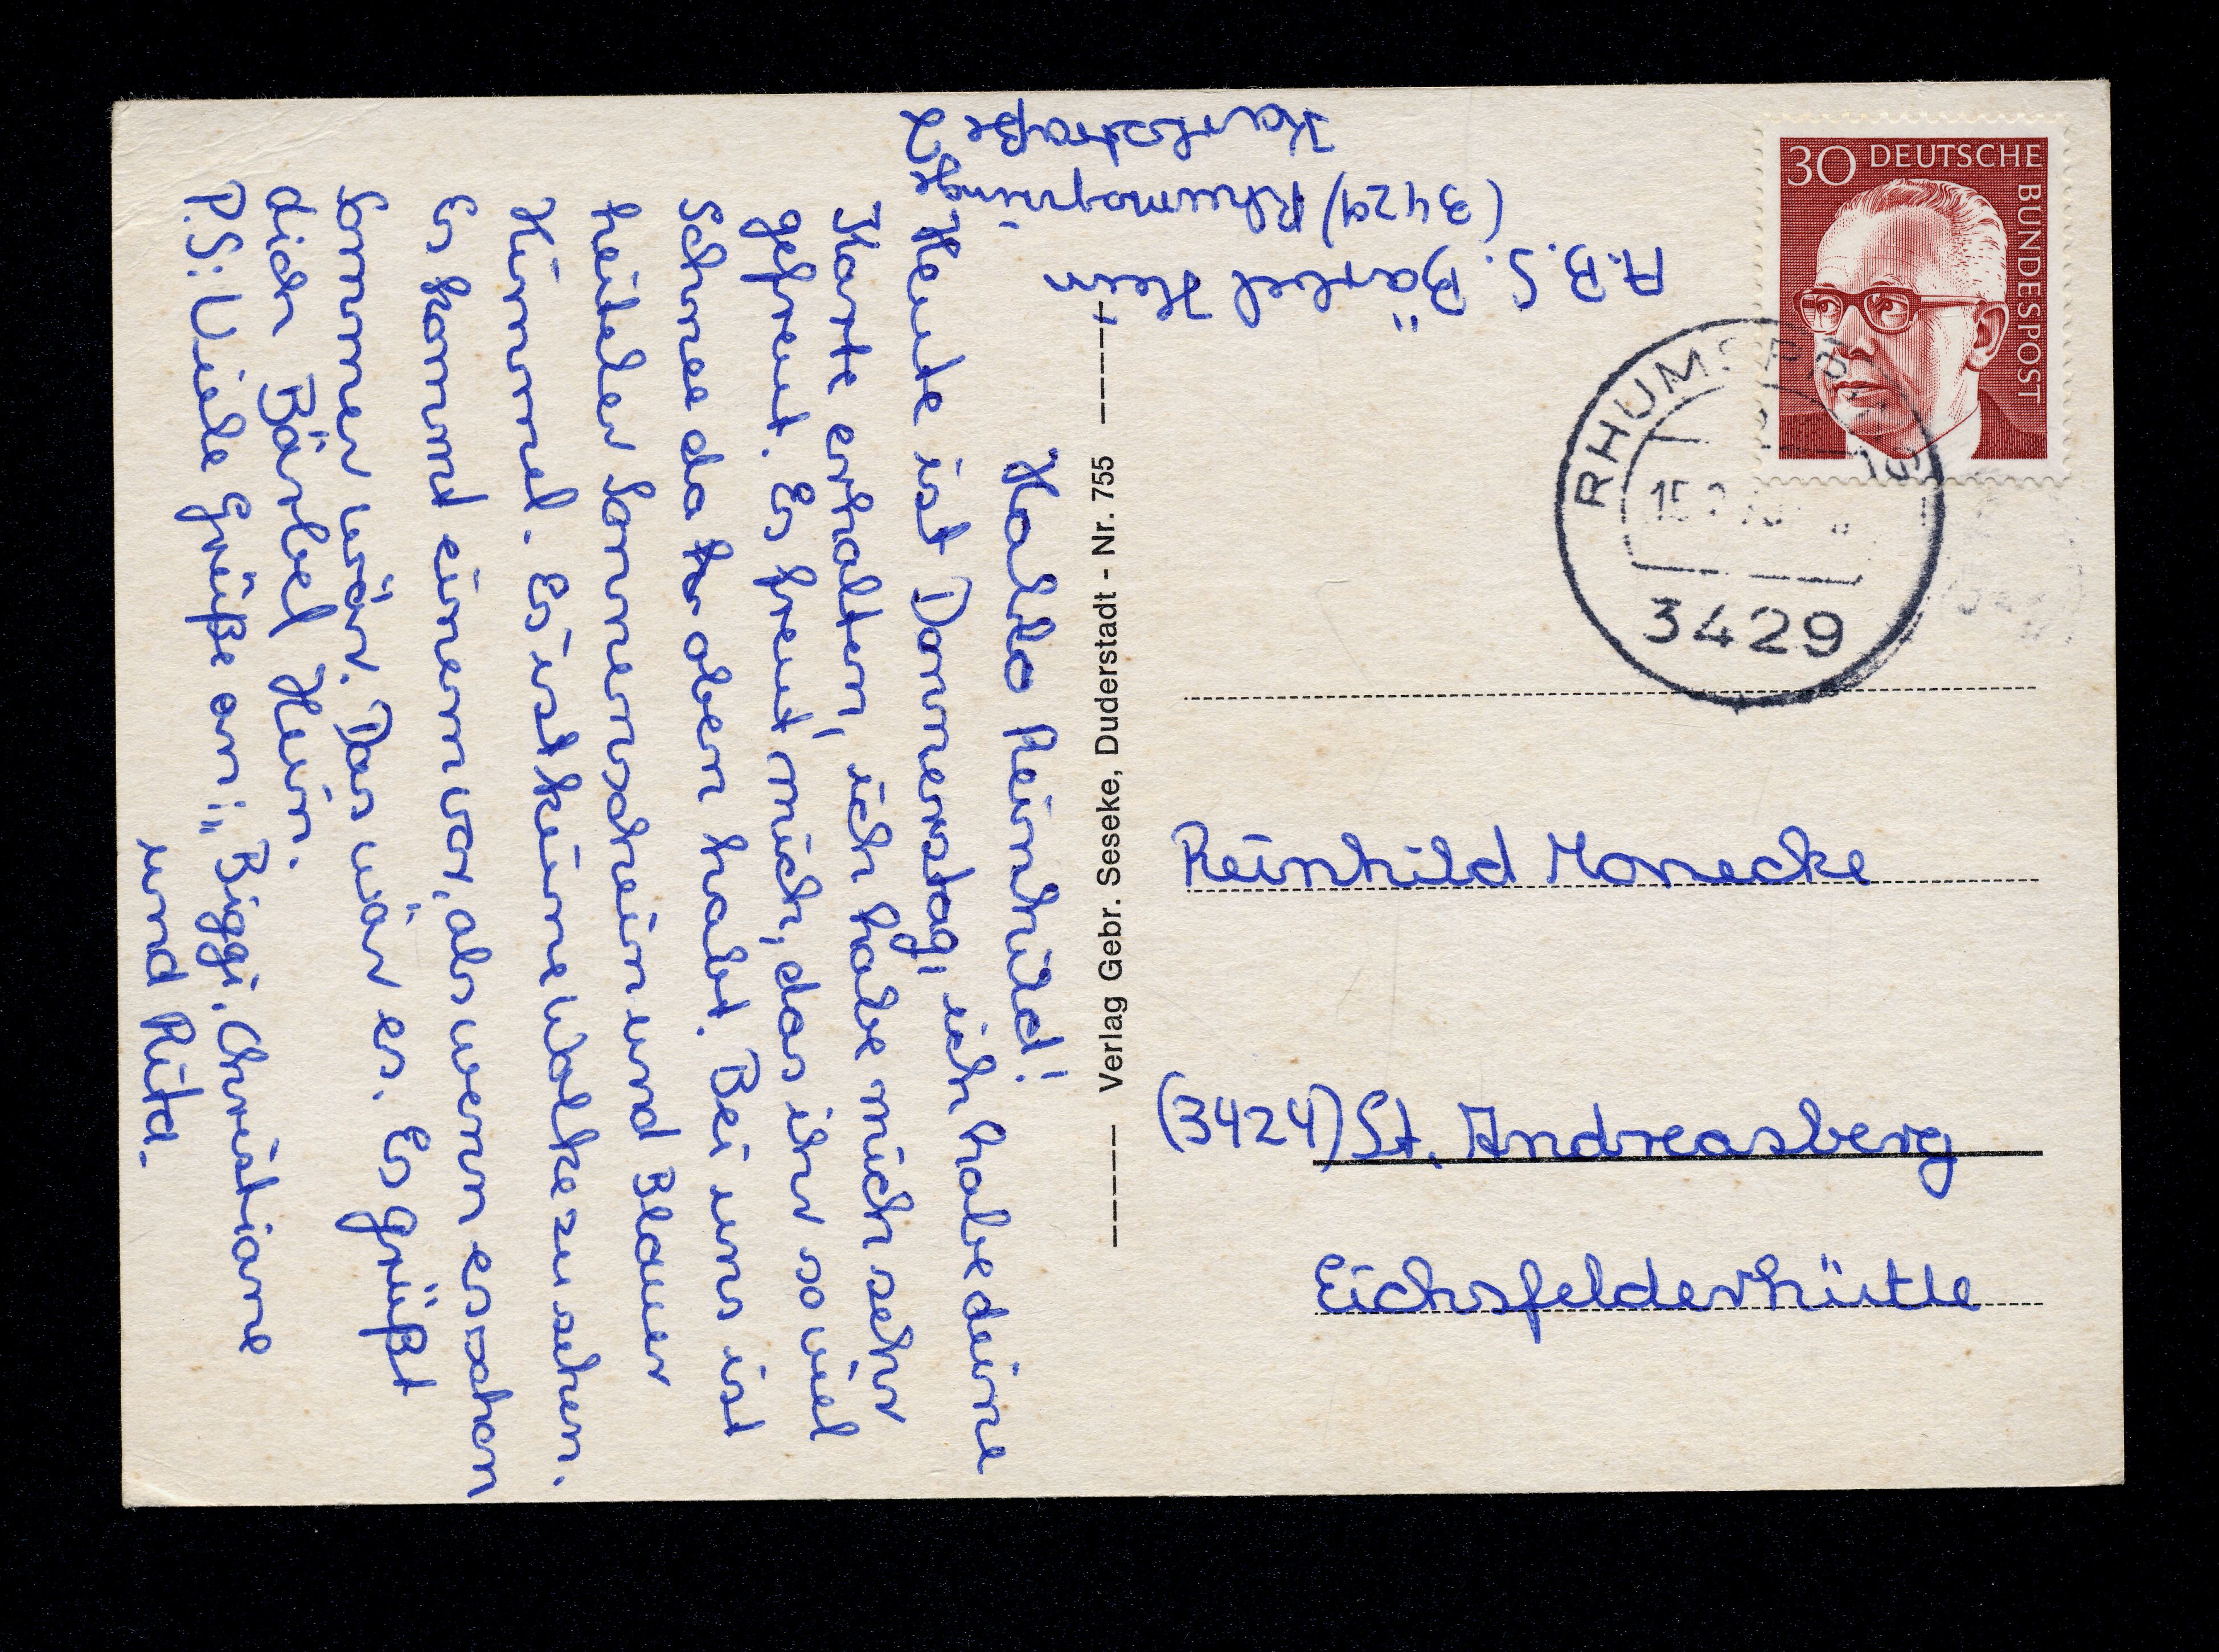 Hallo Reinhild!
Heute ist Donnerstag, ich habe deine
Karte erhalten, ich habe mich sehr
gefreut. Es freut mich, das ihr so viel
Schnee da oben habt. Bei uns ist
heiteler Sonnenschein und Blauer
Himmel. Es ist keine Wolke zu sehen.
Es kommt einem vor, als wenn es schon
Sommer wär. Das wär es. Es grüßt
dich Bärbel Hein.
P.S: Viele Grüße an: Biggi, Christiane
und Rita.
A.B.S. Bärbel Hein
(3429) Rhumspringe
Karlstraße 2
Verlag Gebr. Seseke, Duderstadt - Nr. 755
30 DEUTSCHE
BUNDESPOST
3429
Reinhild Monecke
(3424) St. Andreasberg
Eichsfelderhütte